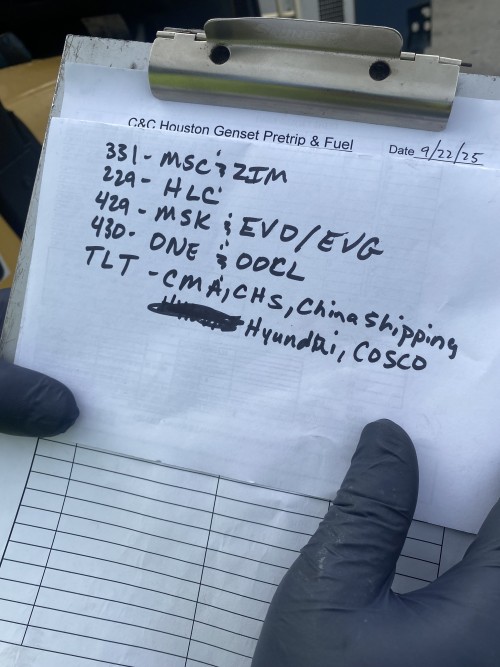 C&C Houston Genset Pretrip & Fuel Date 9/22/25
331- MSC & ZIM
229- HLC
429- MSK & EVO/EVG
430- ONE & OOCL
TLT - CMA, CHS, China Shipping
Hyundai, COSCO